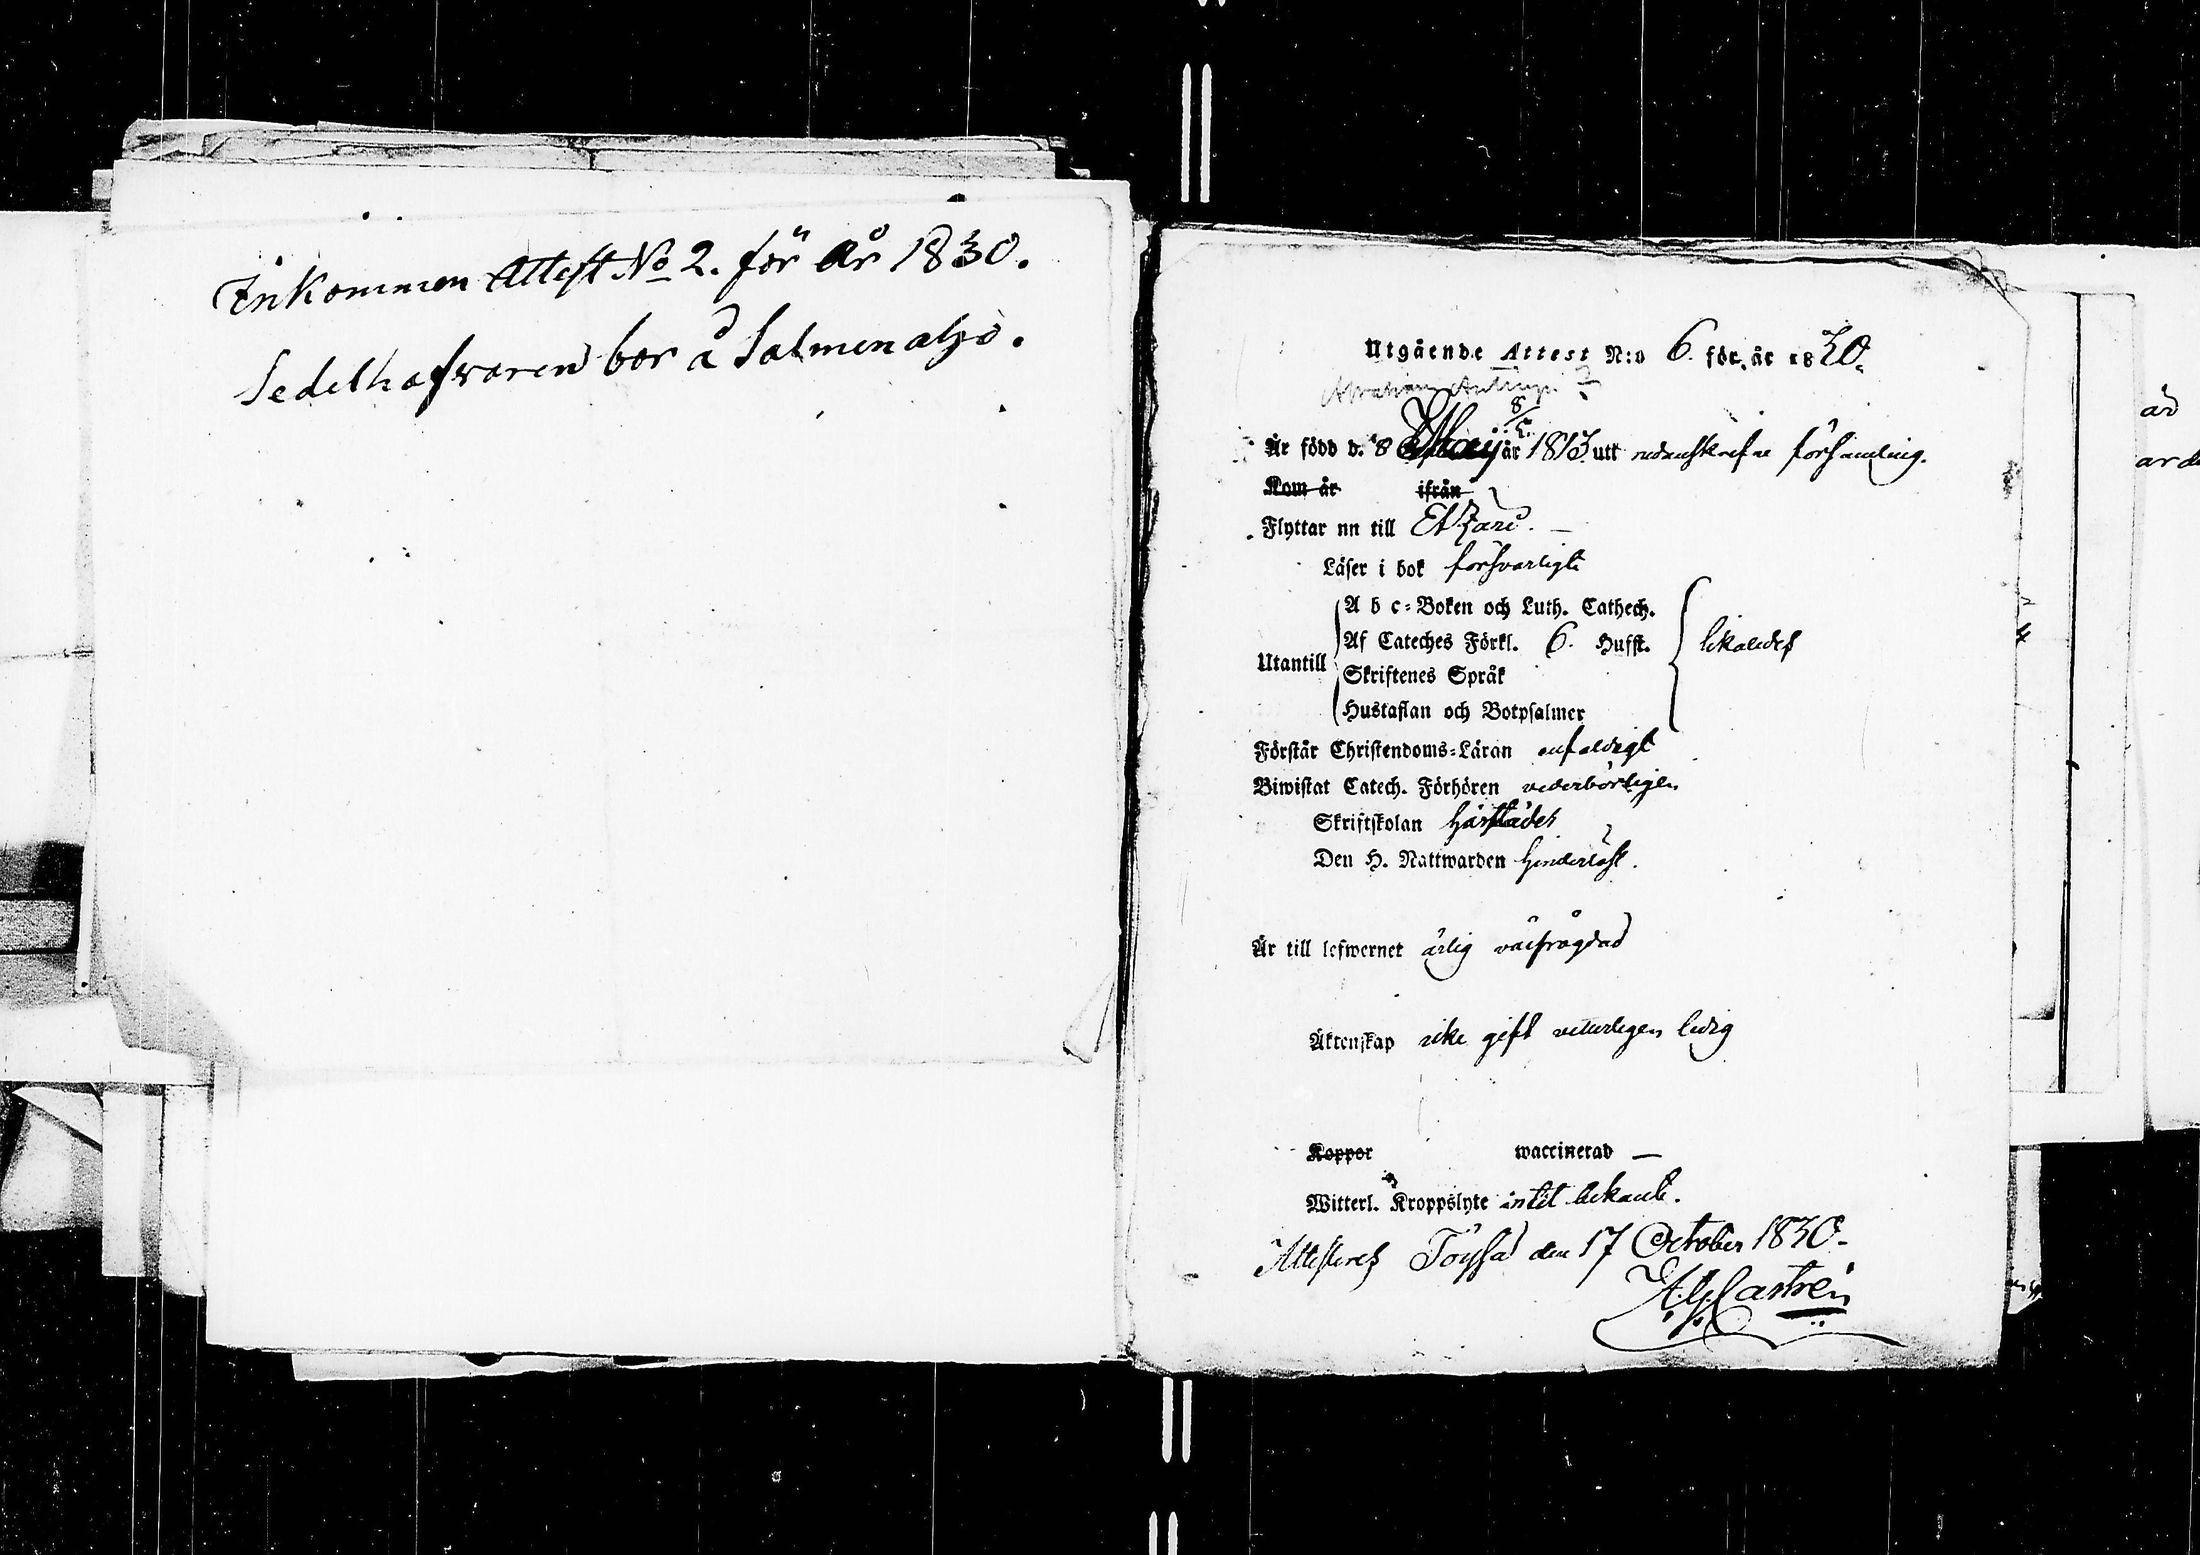 Inkommen Attest No 2. för år 1830.
Sedelhafvaren bor å Salmenalho.
Utgående Attest N:o 6. för år 1830.
Abraham
8/5.
Är född d. 8 Maij år 1813 utt nedanskrefne församling.
Kom år ifrån
Flyttar nu till Etzäri. —
Läser i bok försvarligt
A b c-Boken och Luth. Cathech.
Af Cateches Förkl. 6. Hufst. likaledes
Utantill
Skriftenes Språk
Hustaflan och Botpsalmer
Förstår Christendoms-Läran enfaldigt
Biwistat Catech. Förhören vederbörligen
Skriftskolan härstädes
Den H. Nattwarden hinderlöst.
Är till lefwernet ärlig välfrägdad
Äktenskap icke gift veterligen ledig
Koppor waccinerad —
Witterl. Kroppslyte intet bekant.
Attesteres Töysä den 17 October 1830.
A. G. Castrén
är